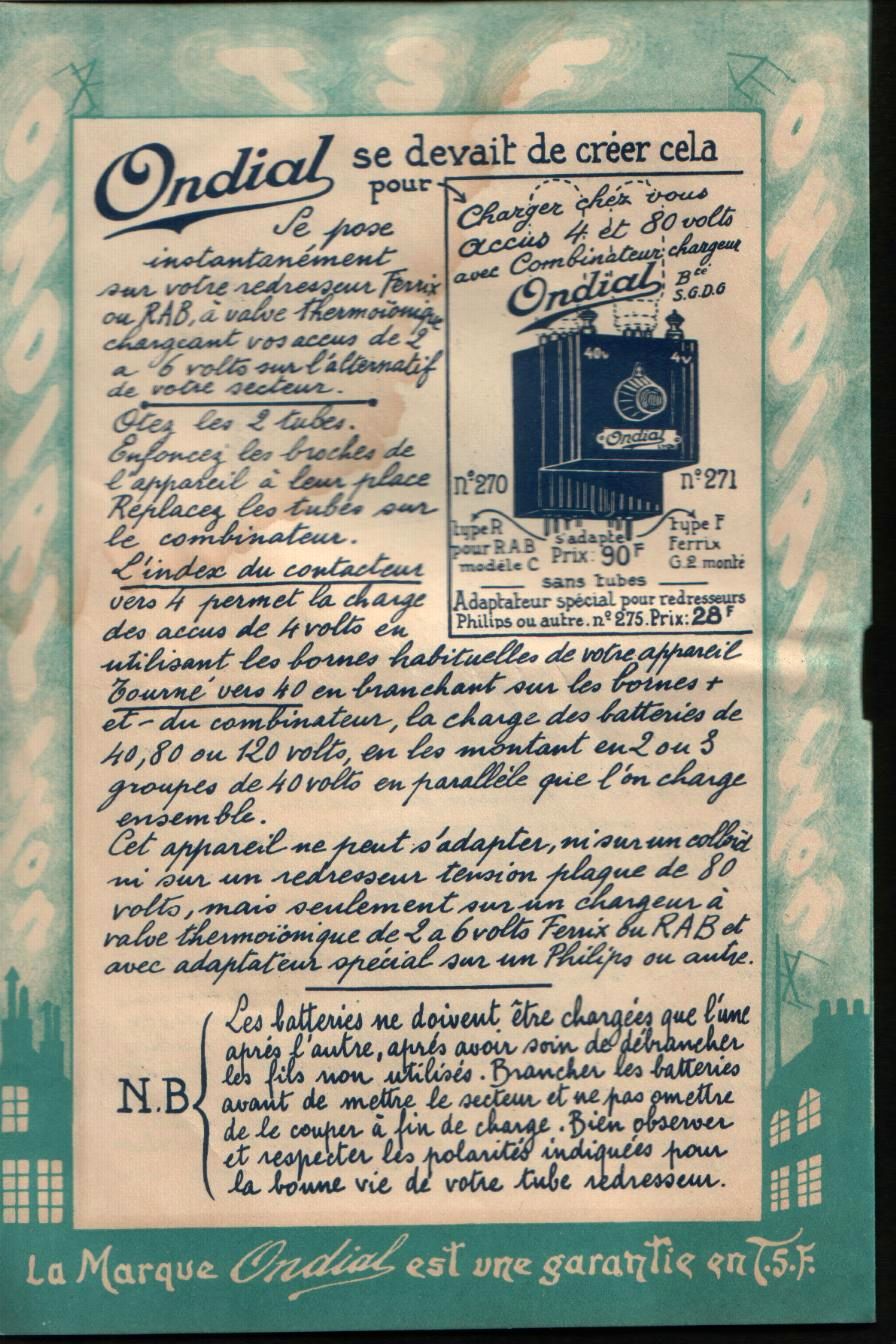 T S F
ONDIAL
ONDIAL
Ondial se devait de créer cela
pour
Se pose
instantanément
sur votre redresseur Ferrix
ou RAB, à valve thermoïonique
chargeant vos accus de 2
a 6 volts sur l'alternatif
de votre secteur.
Otez les 2 tubes.
Enfoncez les broches de
l'appareil à leur place
Replacez les tubes sur
le combinateur.
L'index du contacteur
vers 4 permet la charge
des accus de 4 volts en
Charger chez vous
accus 4 et 80 volts
avec Combinateur chargeur
Ondial Bté
S.G.D.G
40v 4v
Ondial
N°270 n°271
type R
pour R.A.B
modèle C
s'adapte
Prix: 90F
type F
Ferrix
G.2 monté
sans tubes
Adaptateur spécial pour redresseurs
Philips ou autre. n° 275. Prix: 28F
utilisant les bornes habituelles de votre appareil
Tourné vers 40 en branchant sur les bornes +
et - du combinateur, la charge des batteries de
40, 80 ou 120 volts, en les montant en 2 ou 3
groupes de 40 volts en parallèle que l'on charge
ensemble.
Cet appareil ne peut s'adapter, ni sur un colloïd
ni sur un redresseur tension plaque de 80
volts, mais seulement sur un chargeur à
valve thermoïonique de 2 a 6 volts Ferrix ou RAB et
avec adaptateur spécial sur un Philips ou autre.
N.B
Les batteries ne doivent être chargées que l'une
aprés l'autre, aprés avoir soin de débrancher
les fils non utilisés. Brancher les batteries
avant de mettre le secteur et ne pas omettre
de le couper à fin de charge. Bien observer
et respecter les polarités indiquées pour
la bonne vie de votre tube redresseur.
La Marque Ondial est une garantie en T.S.F.